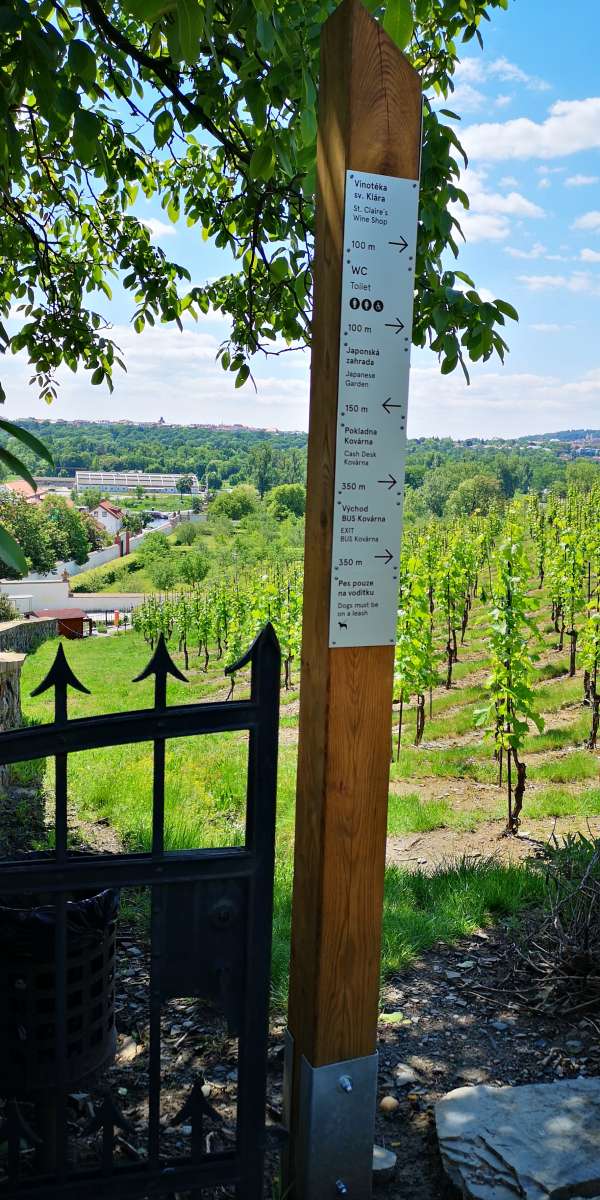 Vinotéka
sv. Klára
St. Claire's
Wine Shop
100 m →
WC
Toilet
100 m →
Japonská
zahrada
Japanese
Garden
150 m ←
Pokladna
Kovárna
Cash Desk
Kovárna
350 m →
Východ
BUS Kovárna
EXIT
BUS Kovárna
350 m →
Pes pouze
na vodítku
Dogs must be
on a leash